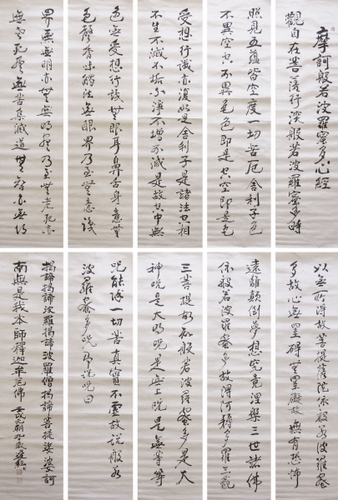 摩訶般若波羅蜜多心經
觀自在菩薩行深般若波羅蜜多時
照見五蘊皆空度一切苦厄舍利子色
不異空空不異色色即是空空即是色
受想行識亦復如是舍利子是諸法空相
不生不滅不垢不淨不增不減是故空中無
色無受想行識無眼耳鼻舌身意無
色聲香味觸法無眼界乃至無意識
界無無明亦無無明盡乃至無老死亦
無老死盡無苦集滅道無智亦無得
以無所得故菩提薩埵依般若波羅蜜
多故心無罣礙無罣礙故無有恐怖
遠離顛倒夢想究竟涅槃三世諸佛
依般若波羅蜜多故得阿耨多羅三藐
三菩提故知般若波羅蜜多是大
神呪是大明呪是無上呪是無等等
呪能除一切苦真實不虛故說般若
波羅蜜多呪即說呪曰
揭諦揭諦波羅揭諦波羅僧揭諦菩提娑婆訶
南無是我本師釋迦牟尼佛